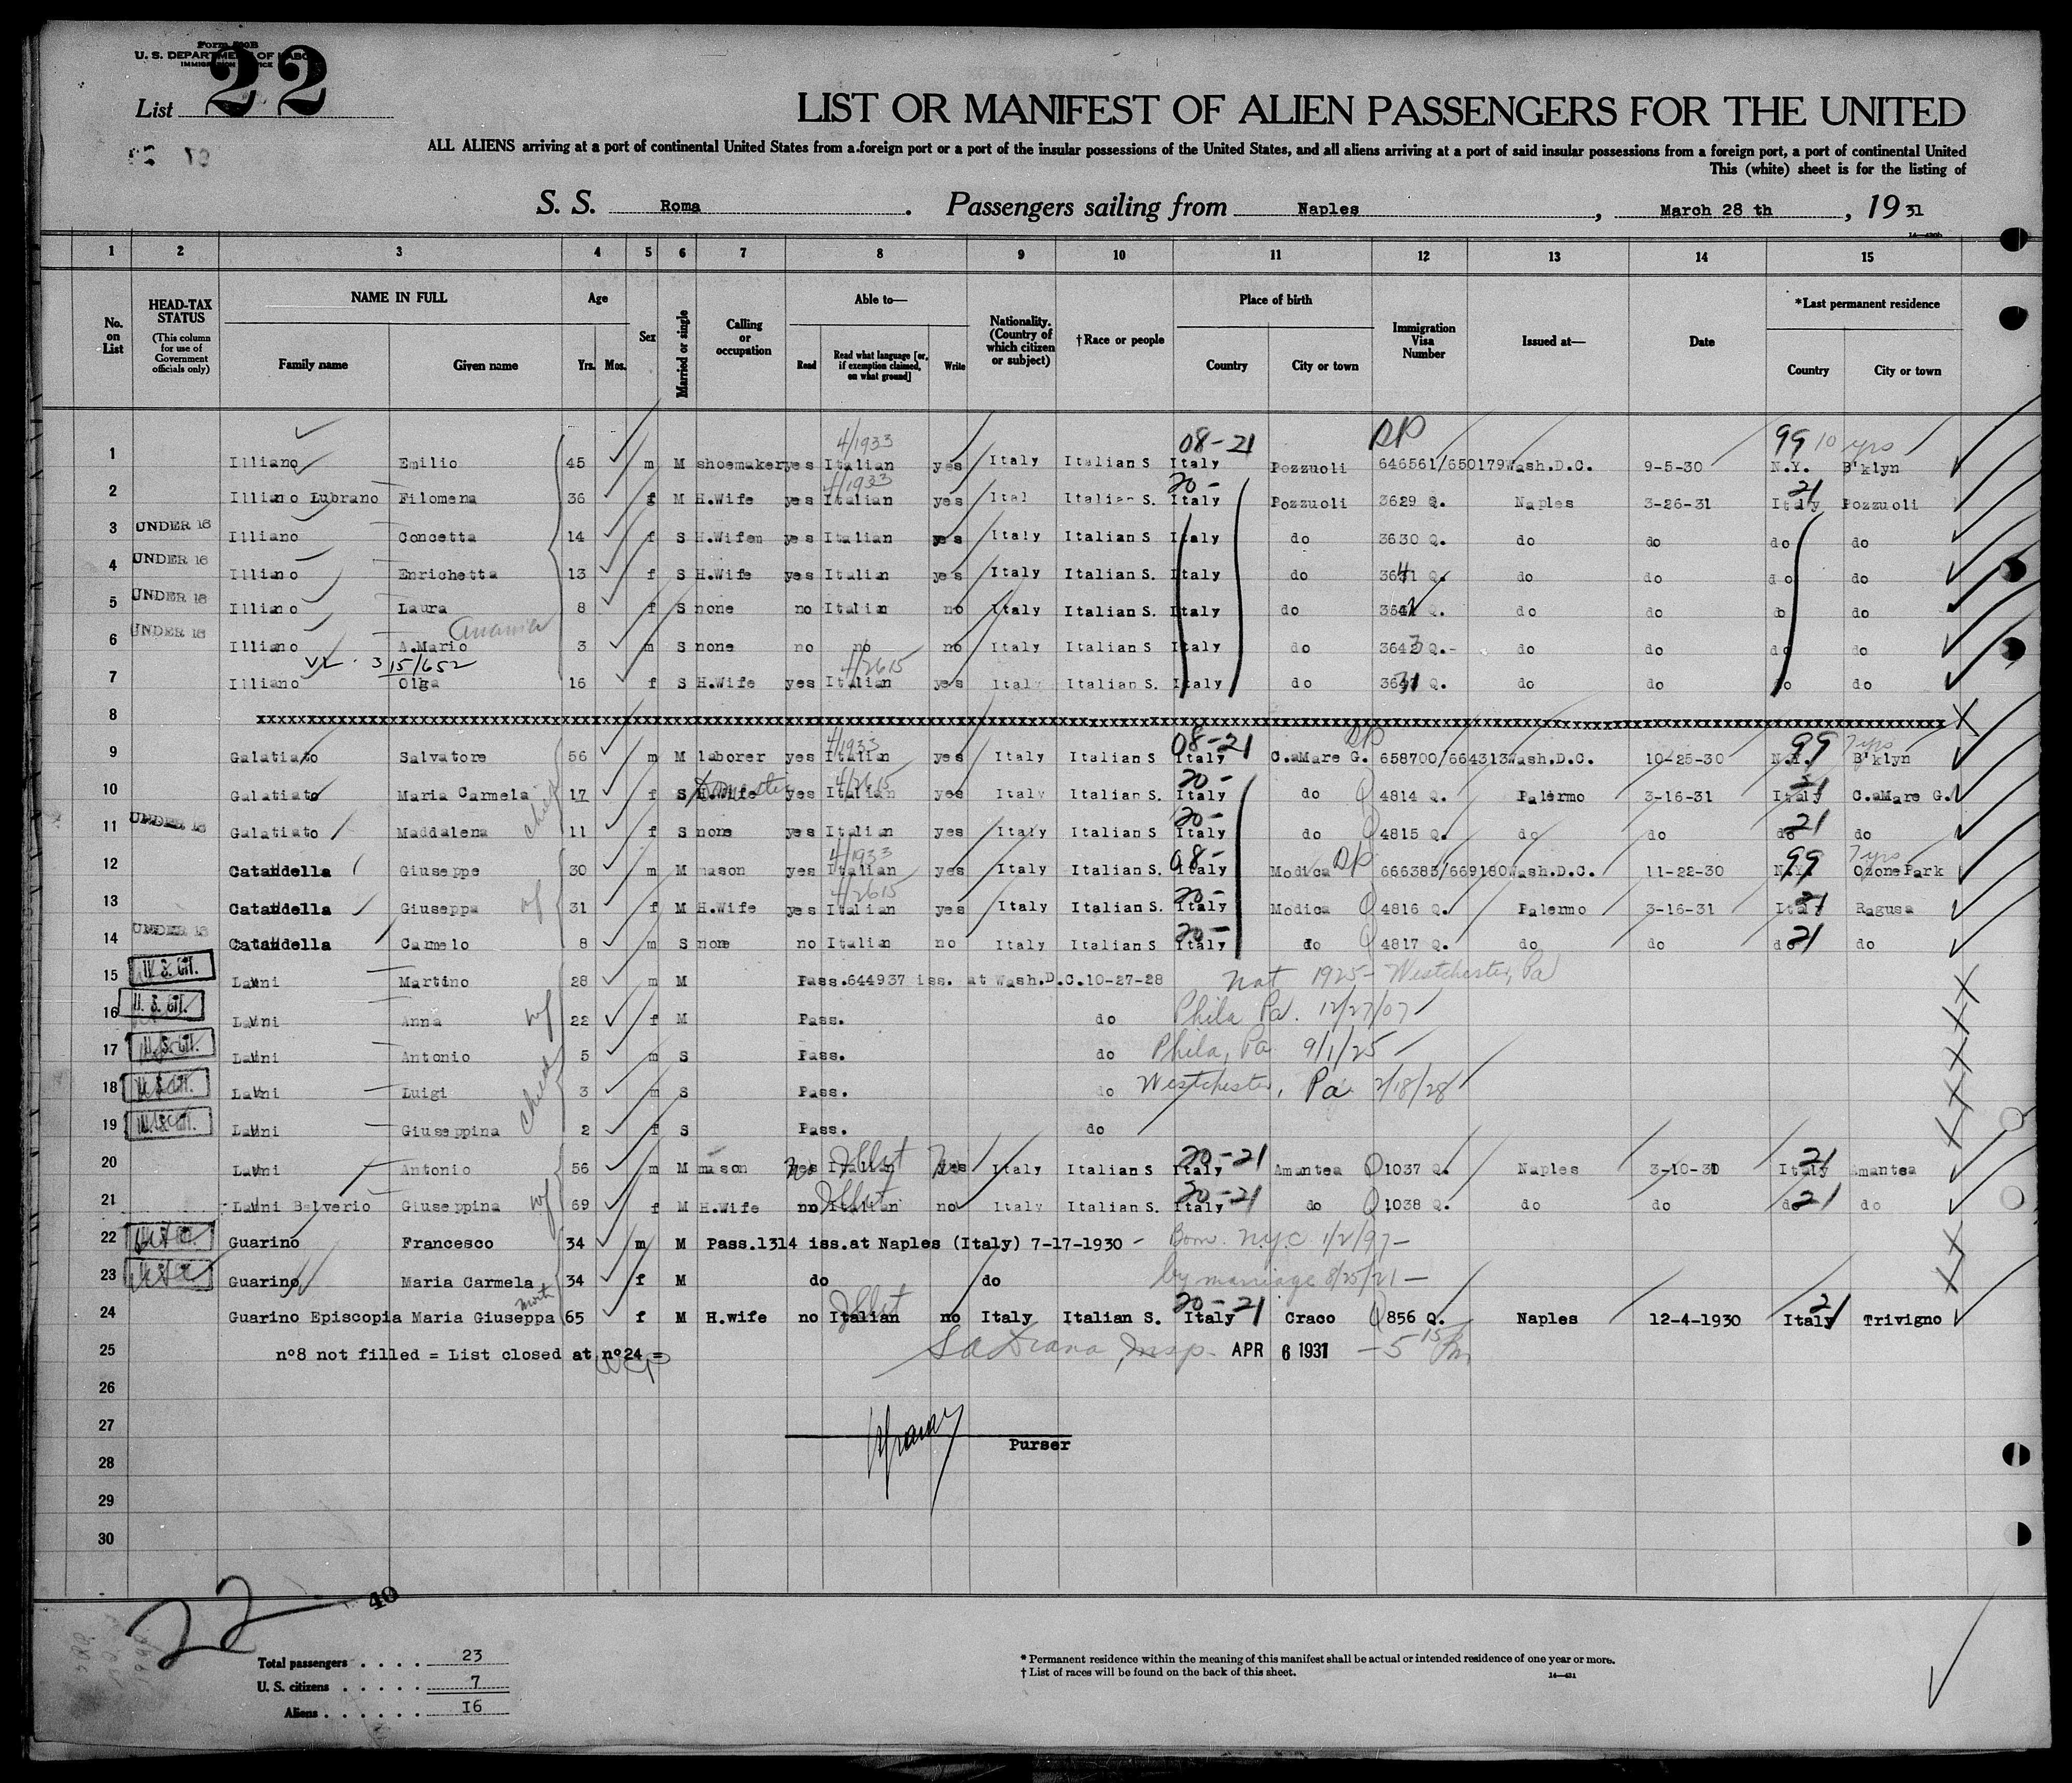 Form 500B
U. S. DEPARTMENT OF LABOR
IMMIGRATION SERVICE
List 22
LIST OR MANIFEST OF ALIEN PASSENGERS FOR THE UNITED
ALL ALIENS arriving at a port of continental United States from a foreign port or a port of the insular possessions of the United States, and all aliens arriving at a port of said insular possessions from a foreign port, a port of continental United
This (white) sheet is for the listing of
S. S. Roma. Passengers sailing from Naples, March 28 th, 1931
1 2 3 4 5 6 7 8 9 10 11 12 13 14 15
No. on List
HEAD-TAX STATUS (This column for use of Government officials only)
NAME IN FULL Family name Given name
Age Yrs. Mos.
Sex
Married or single
Calling or occupation
Able to— Read Read what language [or, if exemption claimed, on what ground] Write
Nationality. (Country of which citizen or subject)
†Race or people
Place of birth Country City or town
Immigration Visa Number
Issued at—
Date
*Last permanent residence Country City or town
4/1933 08-21 DP 99 10 yrs
1 Illiano Emilio 45 m M shoemaker yes Italian yes Italy Italian S Italy Pozzuoli 646561/650179 Wash.D.C. 9-5-30 N.Y. B'klyn
4/1933 20- 21
2 Illiano Lubrano Filomena 36 f M H.Wife yes Italian yes Ital Italian S. Italy Pozzuoli 3629 Q. Naples 3-26-31 Italy Pozzuoli
3 UNDER 16 Illiano Concetta 14 f S H.Wifen yes Italian yes Italy Italian S Italy do 3630 Q. do do do do
4 UNDER 16 Illiano Enrichetta 13 f S H.Wife yes Italian yes Italy Italian S. Italy do 3641 Q. do do do do
5 UNDER 16 Illiano Laura 8 f S none no Italian no Italy Italian S. Italy do Q. do do do do
6 UNDER 16 Illiano A.Mario 3 m S none no no no Italy Italian S. Italy do 3643 Q.- do do do do
315/652 4/2615
7 Illiano Olga 16 f S H.Wife yes Italian yes Italy Italian S. Italy do Q. do do do do
8 xxxxxxxxxxxxxxxxxxxxxxxxxxxxxxxxxxxxxxxx X
4/1933 08-21 DP 99 7 yrs
9 Galatiato Salvatore 56 m M laborer yes Italian yes Italy Italian S Italy C.aMare G. 658700/664313 Wash.D.C. 10-25-30 N.Y. B'klyn
Domestic 4/2615 20- 21
10 Galatiato Maria Carmela 17 f S H.Wife yes Italian yes Italy Italian S. Italy do 4814 Q. Palermo 3-16-31 Italy C.aMare G.
20- 21
11 UNDER 16 Galatiato Maddalena 11 f S none yes Italian yes Italy Italian S. Italy do 4815 Q. do do do do
4/1933 08- DP 99 7 yrs
12 Catandella Giuseppe 30 m M mason yes Italian yes Italy Italian S. Italy Modica 666383/669180 Wash.D.C. 11-22-30 N.Y. Ozone Park
wf 4/2615 20- 21
13 Catandella Giuseppa 31 f M H.Wife yes Italian yes Italy Italian S. Italy Modica 4816 Q. Palermo 3-16-31 Italy Ragusa
20- 21
14 UNDER 16 Catandella Carmelo 8 m S none no Italian no Italy Italian S Italy do 4817 Q. do do do do
15 U. S. CIT. Martino 28 m M Pass.644937 iss. at Wash.D.C.10-27-28 Nat 1925- Westchester, Pa X
16 U. S. CIT. Anna wf 22 f M Pass. do Phila Pa. 12/27/07 X
17 U. S. CIT. Antonio 5 m S Pass. do Phila, Pa 9/1/25 X
18 U. S. CIT. Luigi 3 m S Pass. do Westchester, Pa 2/18/28 X
19 U. S. CIT. Giuseppina 2 f S Pass. do X
20-21 21
20 Antonio 56 m M mason yes Italian yes Italy Italian S Italy Amantea 1037 Q. Naples 3-10-31 Italy Amantea
wf 20-21 21
21 Belverio Giuseppina 69 f M H.Wife no Italian no Italy Italian S. Italy do 1038 Q. do do do do
22 Guarino Francesco 34 m M Pass.1314 iss.at Naples (Italy) 7-17-1930 - Born N.Y.C 1/2/97- X
23 Guarino Maria Carmela 34 f M do do by marriage 8/25/21- X
moth 20-21 21
24 Guarino Episcopia Maria Giuseppa 65 f M H.wife no Italian no Italy Italian S. Italy Craco 856 Q. Naples 12-4-1930 Italy Trivigno
25 n°8 not filled = List closed at n°24 = Insp. APR 6 1931 - 5 15 Pm
26
27
Purser
28
29
30
22 40
Total passengers . . . . 23
U. S. citizens . . . . . 7
Aliens . . . . . . 16
* Permanent residence within the meaning of this manifest shall be actual or intended residence of one year or more.
† List of races will be found on the back of this sheet.